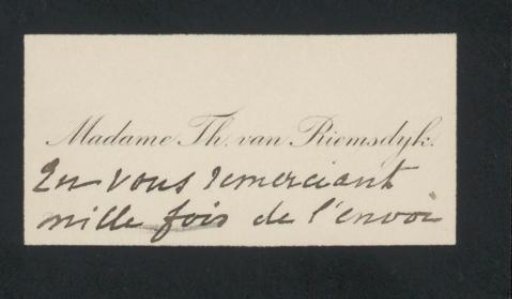 Madame Th. van Riemsdyk.
En vous remerciant
mille fois de l'envoi